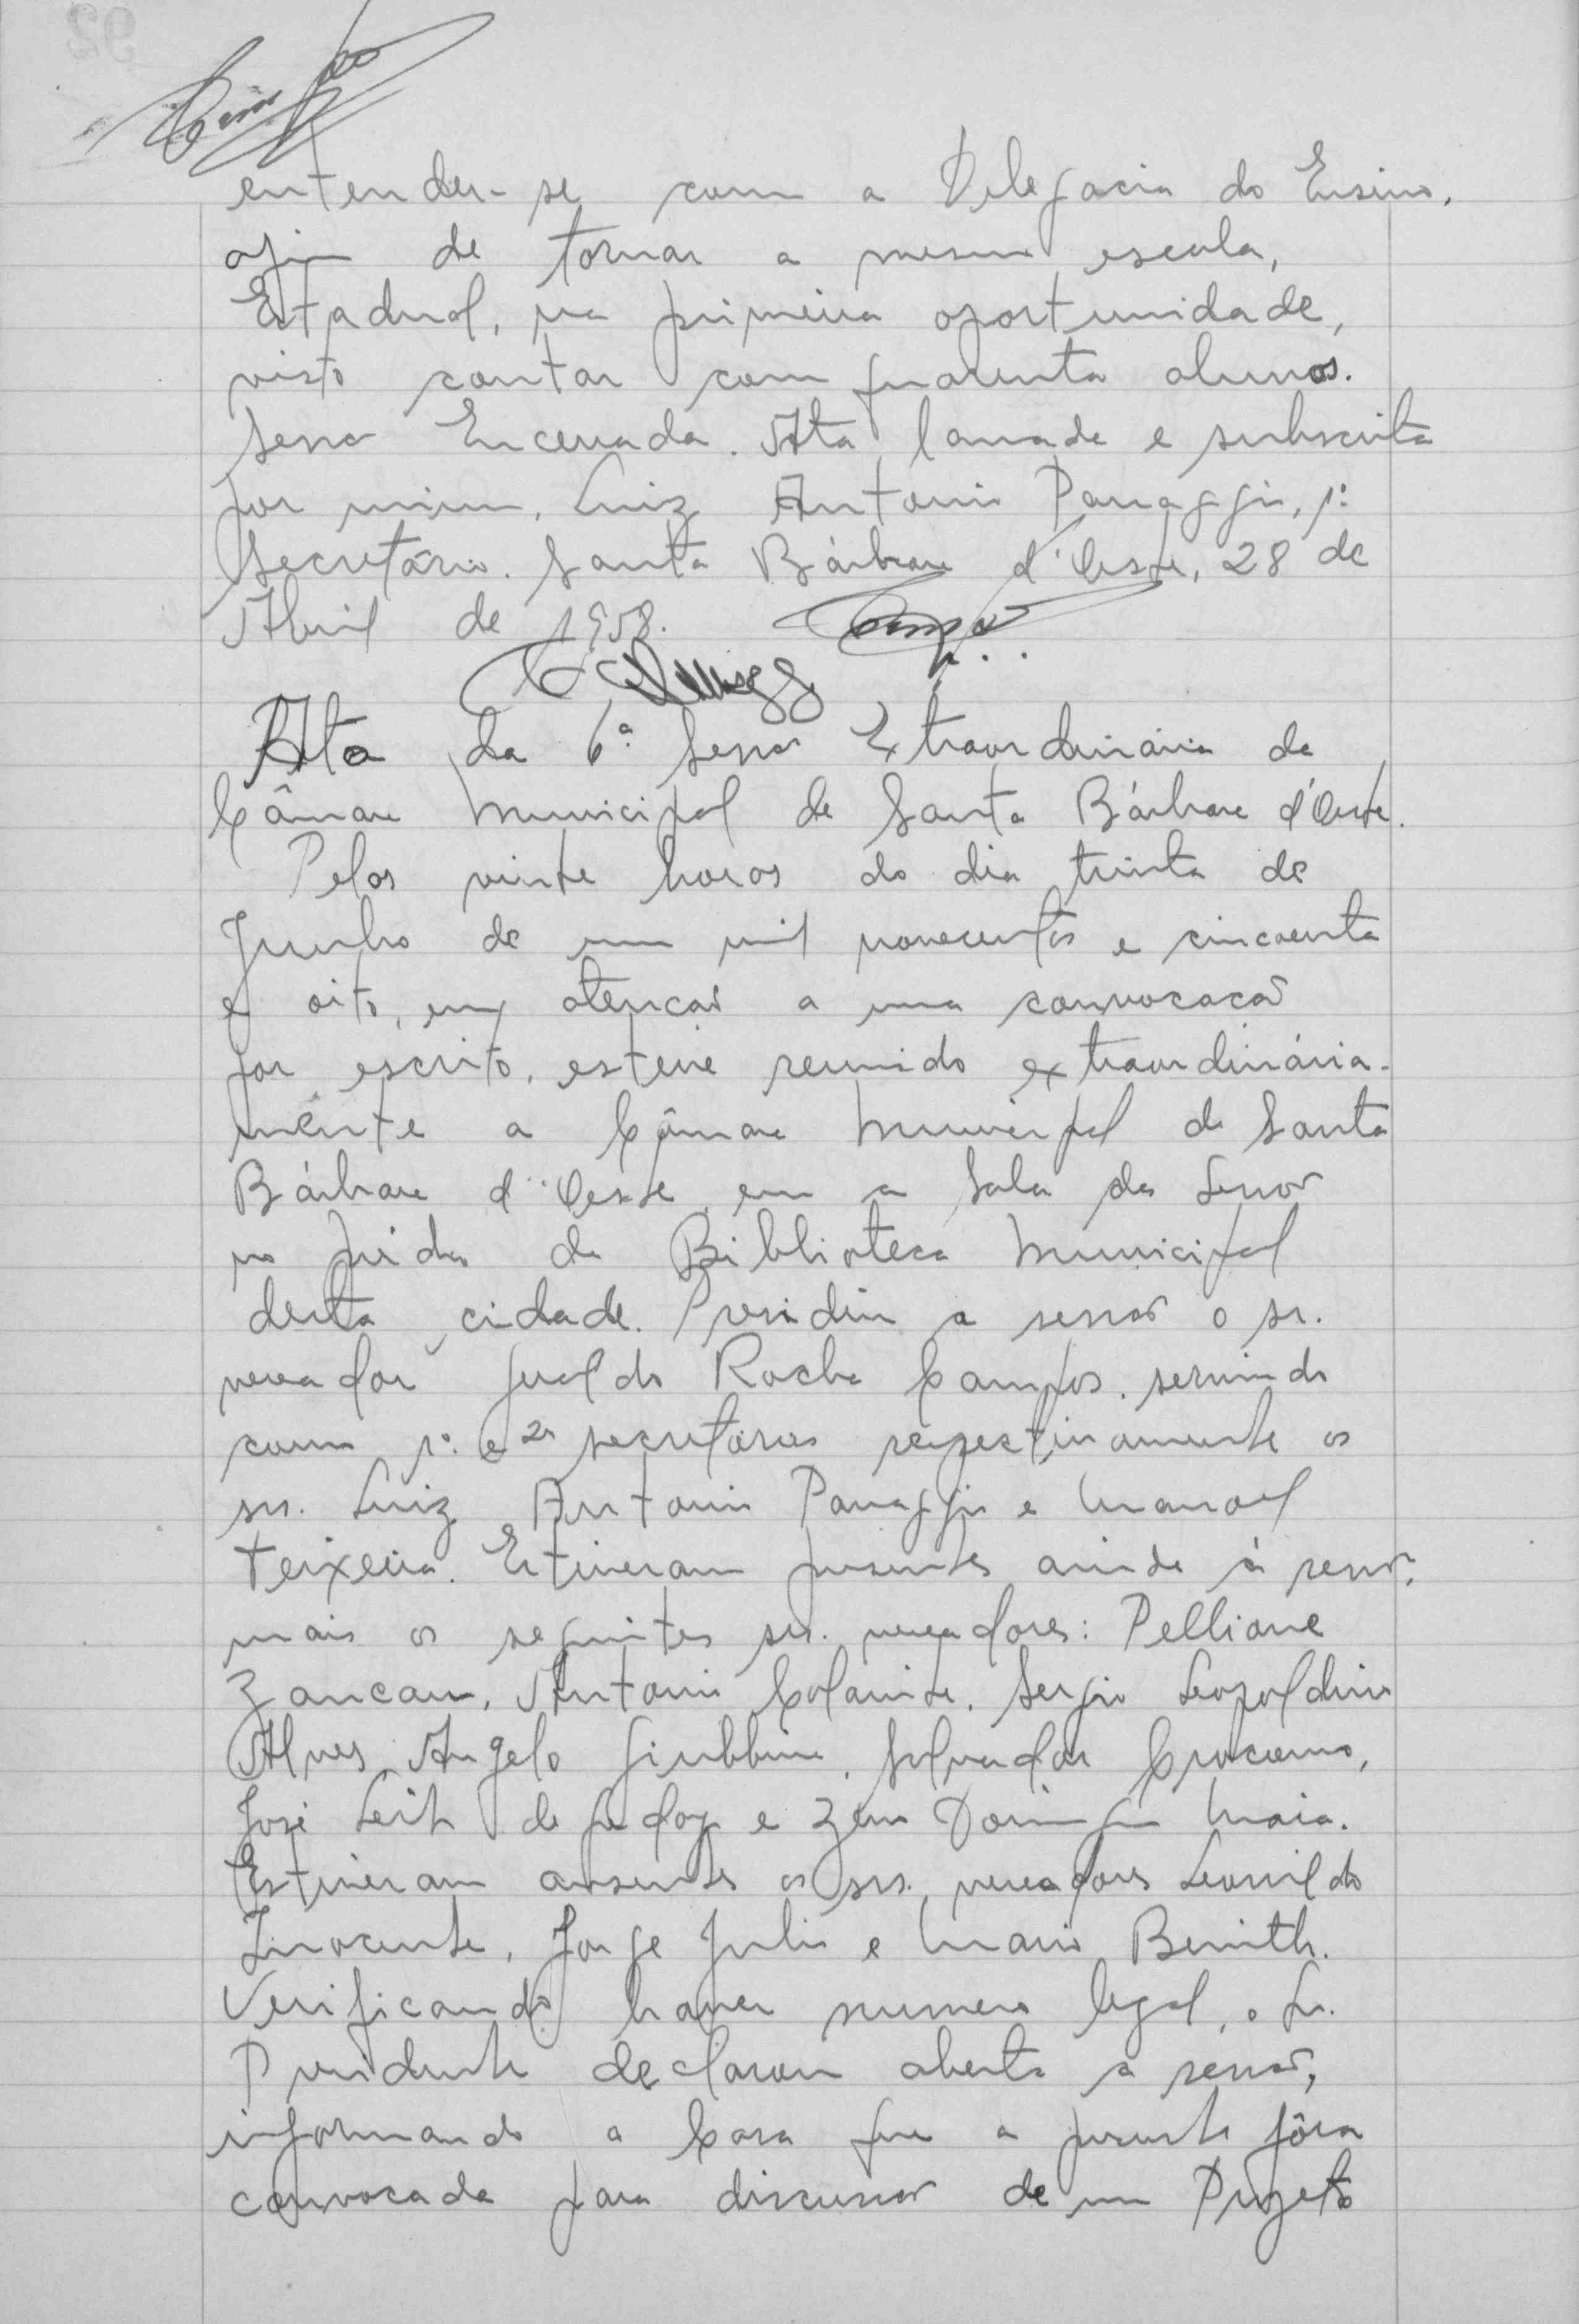 entender-se com a Delegacia do Ensino,
afim de tornar a mesma escola,
Estadual, na primeira oportunidade,
visto contar com quarenta alunos.
Sessão Encerrada. Ata lavrada e subscrita
por mim, Luiz Antonio Panaggio, 1º
Secretário. Santa Bárbara d'Oeste, 28 de
Abril de 1958.
Ata da 6ª Sessão Extraordinária da
Câmara Municipal de Santa Bárbara d'Oeste.
Pelas vinte horas do dia trinta de
Junho de um mil novecentos e cincoenta
e oito, em atenção a uma convocação
por escrito, esteve reunido extraordinária-
mente a Câmara Municipal de Santa
Bárbara d'Oeste, em a Sala da Sessão
no prédio da Biblioteca Municipal
desta cidade. Presidiu a sessão o sr.
vereador Geraldo Rocha Campos, servindo
como 1º e 2º secretários respectivamente os
srs. Luiz Antonio Panaggio e Manoel
Teixeira. Estiveram presentes ainda à sessão,
mais os seguintes srs. vereadores: Pelliane
Zancan, Antonio Sergio Leopoldino
Alves, Angelo Giubbina, Salvador
José Leite de Godoy e Zeno Domingo Maia.
Estiveram ausentes os srs. vereadores Leonildo
Inocente, Jorge Julio e Mario
Verificando haver numero legal, o Sr.
Presidente declarou aberta a sessão,
informando a Casa que a presente fôra
convocada para discussão de um Projeto